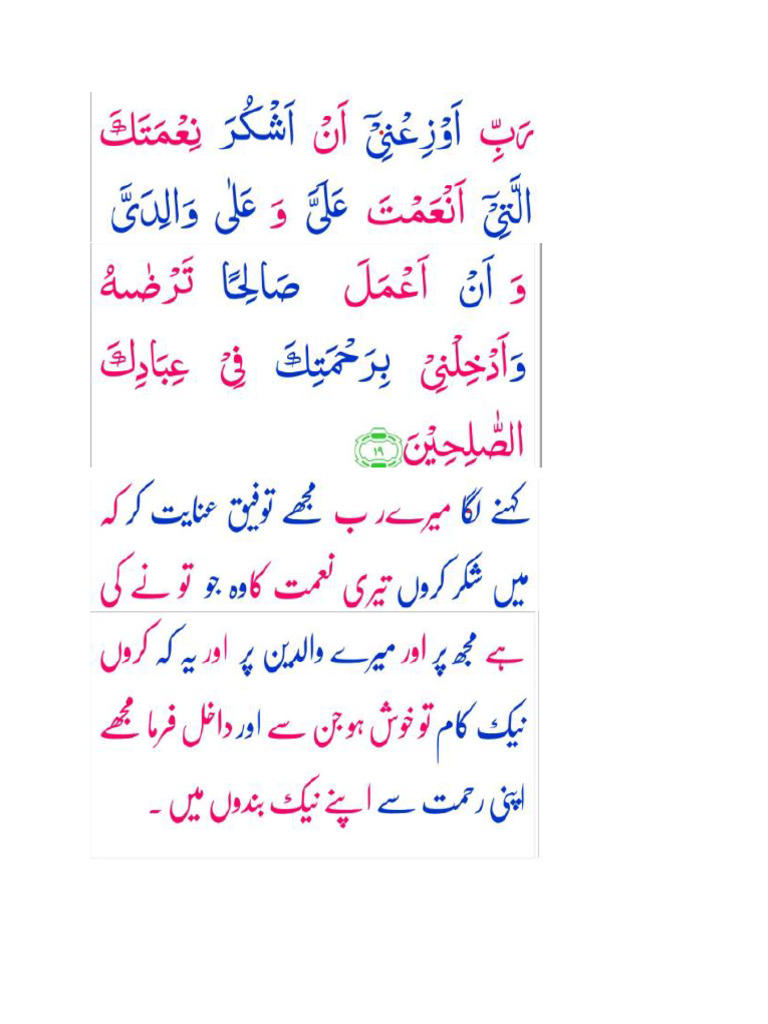 رَبِّ اَوْزِعْنِیْۤ اَنْ اَشْكُرَ نِعْمَتَكَ
الَّتِیْۤ اَنْعَمْتَ عَلَیَّ وَ عَلٰی وَالِدَیَّ
وَ اَنْ اَعْمَلَ صَالِحًا تَرْضٰىهُ
وَاَدْخِلْنِیْ بِرَحْمَتِكَ فِیْ عِبَادِكَ
الصّٰلِحِیْنَ ۱۹
کہنے لگا میرے رب مجھے توفیق عنایت کر کہ
میں شکر کروں تیری نعمت کا وہ جو تو نے کی
ہے مجھ پر اور میرے والدین پر اور یہ کہ کروں
نیک کام تو خوش ہو جن سے اور داخل فرما مجھے
اپنی رحمت سے اپنے نیک بندوں میں ۔